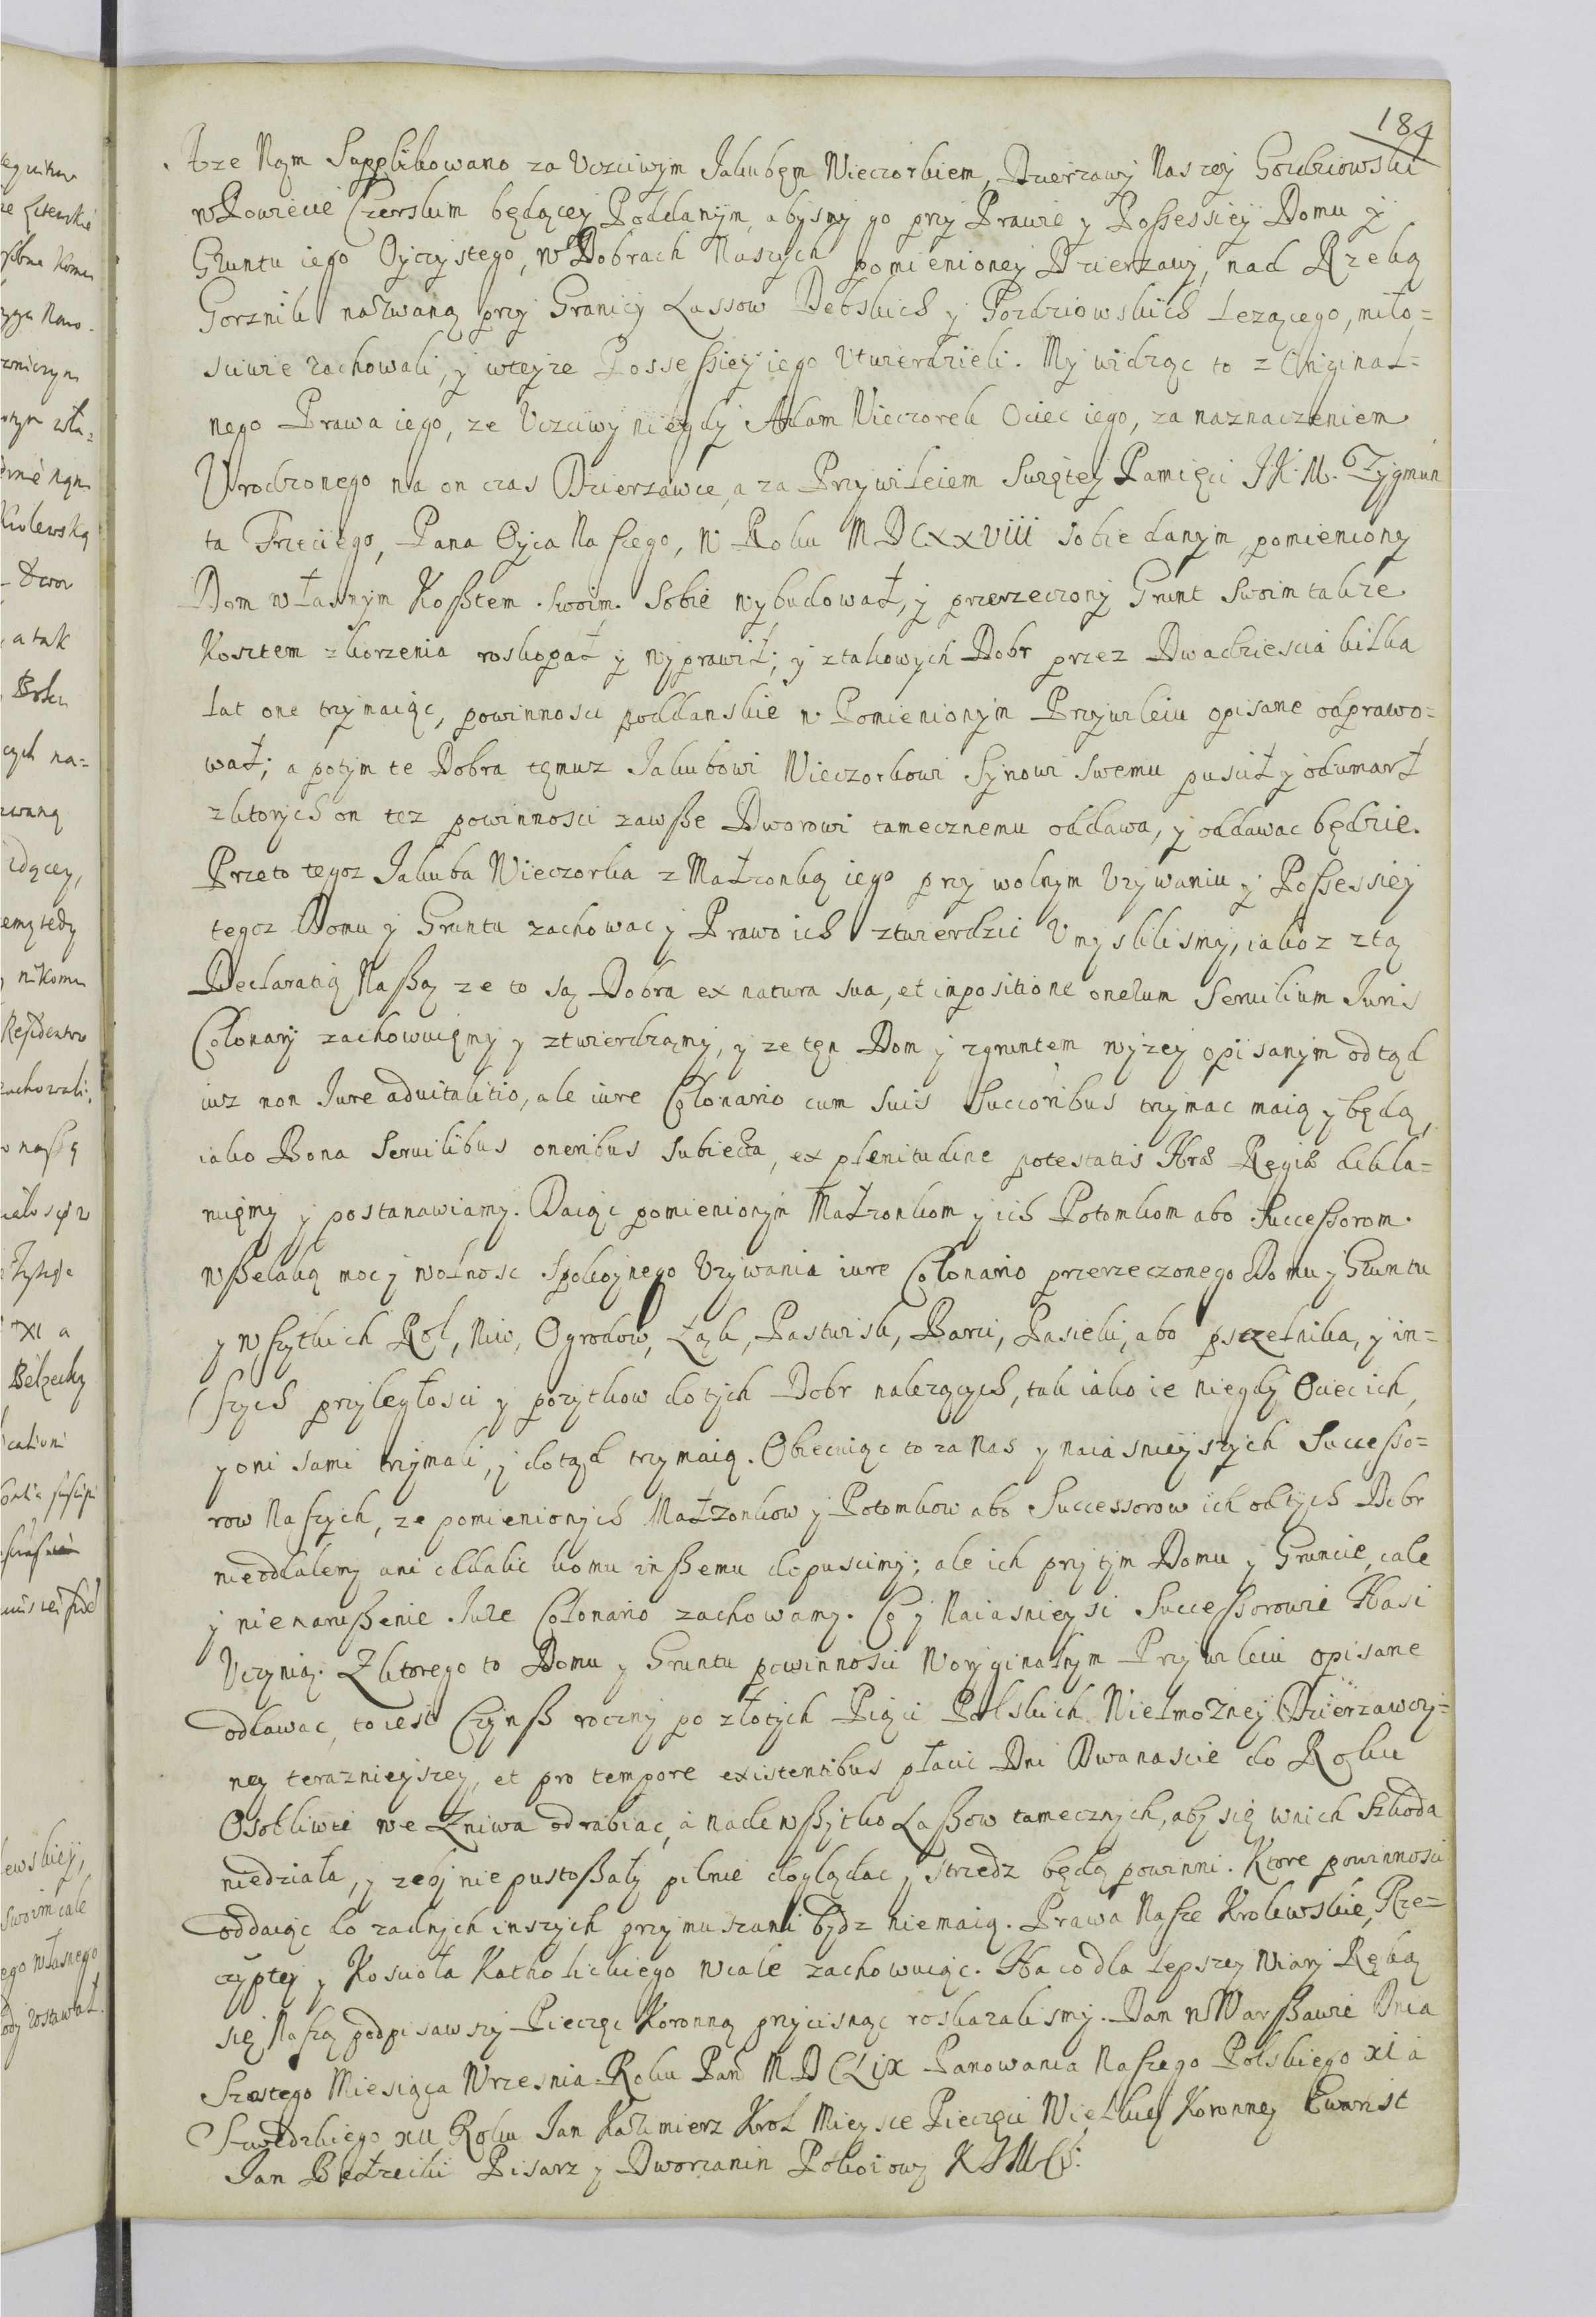 184
Jze Nąm Supplikowano za Vczciwym Jakubęm Wieczorkiem, Dzierzawy Naszey Gozdziowski
w Powiecie Czerskim będącey Poddanym, abysmy go przy Prawie y Possessiey Domu y
Gruntu iego Oyczystego, w Dobrach Naszych pomienioney Dzierzawy, nad Rzeką
Gorznik nazwaną przy Granicy Lassow Debskich y Gozdziowskich Lezącego, miło=
sciwie zachowali, y wteyze Possessiey iego Vtwierdzieli. My widząc to z Originał=
nego Prawa iego, ze Vczciwy niegdy Adam Wieczorek Ociec iego, za naznaczeniem
Vrodzonego na on czas Dzierzawce, a za Przywileiem Swiętey Pamięci J K. M. Zygmun
ta Trzeciego, Pana Oyca Naszego, w Roku MDCXXVIII sobie danym, pomieniony
Dom własnym Kosztem swoim sobie wybudował, y przerzeczony Grunt Swoim takze
Kosztem zkorzenia roskopał y wyprawił; y ztakowych Dobr przez Dwadziescia kilka
Lat one trzymaiąc, powinnosci poddanskie w Pomienionym Przywileiu opisane odprawo=
wał; a potym te Dobra tęmuz Jakubowi Wieczorkowi Synowi Swemu puscił y odumarł
zktorych on tez powinnosci zawsze Dworowi tamecznemu oddawa, y oddawac będzie.
Przeto tegoz Jakuba Wieczorka z Małzonką iego przy wolnym Vzywaniu y Possessiey
tegoz Domu y Gruntu zachowac y Prawo ich ztwierdzic Vmyslilismy, iakoz ztą
Declaratią Naszą ze to są Dobra ex natura sua, et inpositione onerum Servilium Juris
Colonarij zachowuięmy y ztwierdzamy, y ze tęn Dom y zgruntem wyzey opisanym odtąd
iuz non Jure aduitalitio, ale iure Colonario cum Suis Succoribus trzymac maią y będą,
iako Bona Servilibus oneribus Subiecta, ex plenitudine potestatis Nrae Regiae dekla=
ruięmy y postanawiamy. Daiąc pomienionym Małzonkom y ich Potomkom abo Successorom
wszelaką moc y wolnosc Spokoynego Vzywania iure Colonario przerzeczonego Domu y Gruntu
y wszytkich Rol, Niw, Ogrodow, Łąk, Pastwisk, Barci, Pasieki, abo pszczelnika, y in=
szych przyległosci y pozytkow do tych Dobr nalezących, tak iako ie niegdy Ociec ich,
y oni sami trzymali, y dotąd trzymaią. Obiecuiąc to za Nas y naiasnieyszych Successo=
row Naszych, ze pomienionych Małzonkow y Potomkow abo Successorow ich od tych Dobr
nieoddalemy ani oddalic komu inszemu dopuscimy; ale ich przy tym Domu y Gruncie, cale
y nienaruszenie Jure Colonario zachowamy. Co y Naiasnieysi Successorowie Nasi
Vczynią. Zktorego to Domu y Gruntu powinnosci Woryginalnym Przywileiu opisane
oddawac, to iest Czynsz roczny po złotych Pięci Polskich Wielmozney Dzierzawczy=
ney terazniejszey, et pro tempore existentibus płacic Dni Dwanascie do Roku
Osobliwie we Zniwa odrabiac, a nadewszytko Lassow tamecznych, aby się wnich Szkoda
niedziała, y zeby niepustoszały pilnie doglądac y strzedz będą powinni. Ktore powinnosci
oddaiąc do zadnych inszych przymuszani bydz niemaią. Prawa Nasze Krolewskie, Rze=
czyptey y Kosciola Katholickiego wcale zachowuiąc. Na co dla Lepszey Wiary Ręką
się Naszą podpisawszy Pieczęc Koronną przycisnąc roskazalismy. Dan w Warszawie Dnia
Szostego Miesiąca Wrzesnia Roku Pan MDCLIX Panowania Naszego Polskiego XI a
Szwedzkiego XII Roku Jan Kazimierz Krol Mieysce Pieczęci Wielkiey Koronney Ewarist
Jan Bełzecki Pisarz y Dworzanin Pokoiowy K J M Ci: